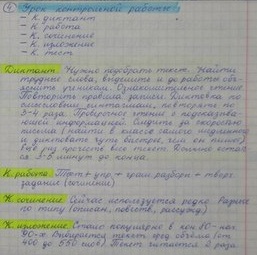 ④ Урок контрольной работы
- К. диктант
- К. работа
- К. сочинение
- К. изложение
- К. тест
Диктант Нужно подобрать текст. Найти
трудные слова, выделить и до работы объ-
яснить ученикам. Ознакомительное чтение.
Повторить правила записи. Диктовка по
смысловым синтагмам, повторять по
3-4 раза. Проверочное чтение с подсказыва-
ющей информацией. Следить за скоростью
письма (найти в классе самого медленного
и диктовать чуть быстрее, чем он пишет)
раз прочесть весь текст. Должно остать-
ся 3-5 минут до конца.
К. работа Текст + упр. + грам. разбор + творч.
задание (сочинение)
К. сочинение Сейчас используется редко. Разное
по типу (описан, повеств, рассужд)
К. изложение Стало популярно в кон 80- нач
90-х. Выбирается текст объёма (от
400 до 550 слов). Текст читается 2 раза.